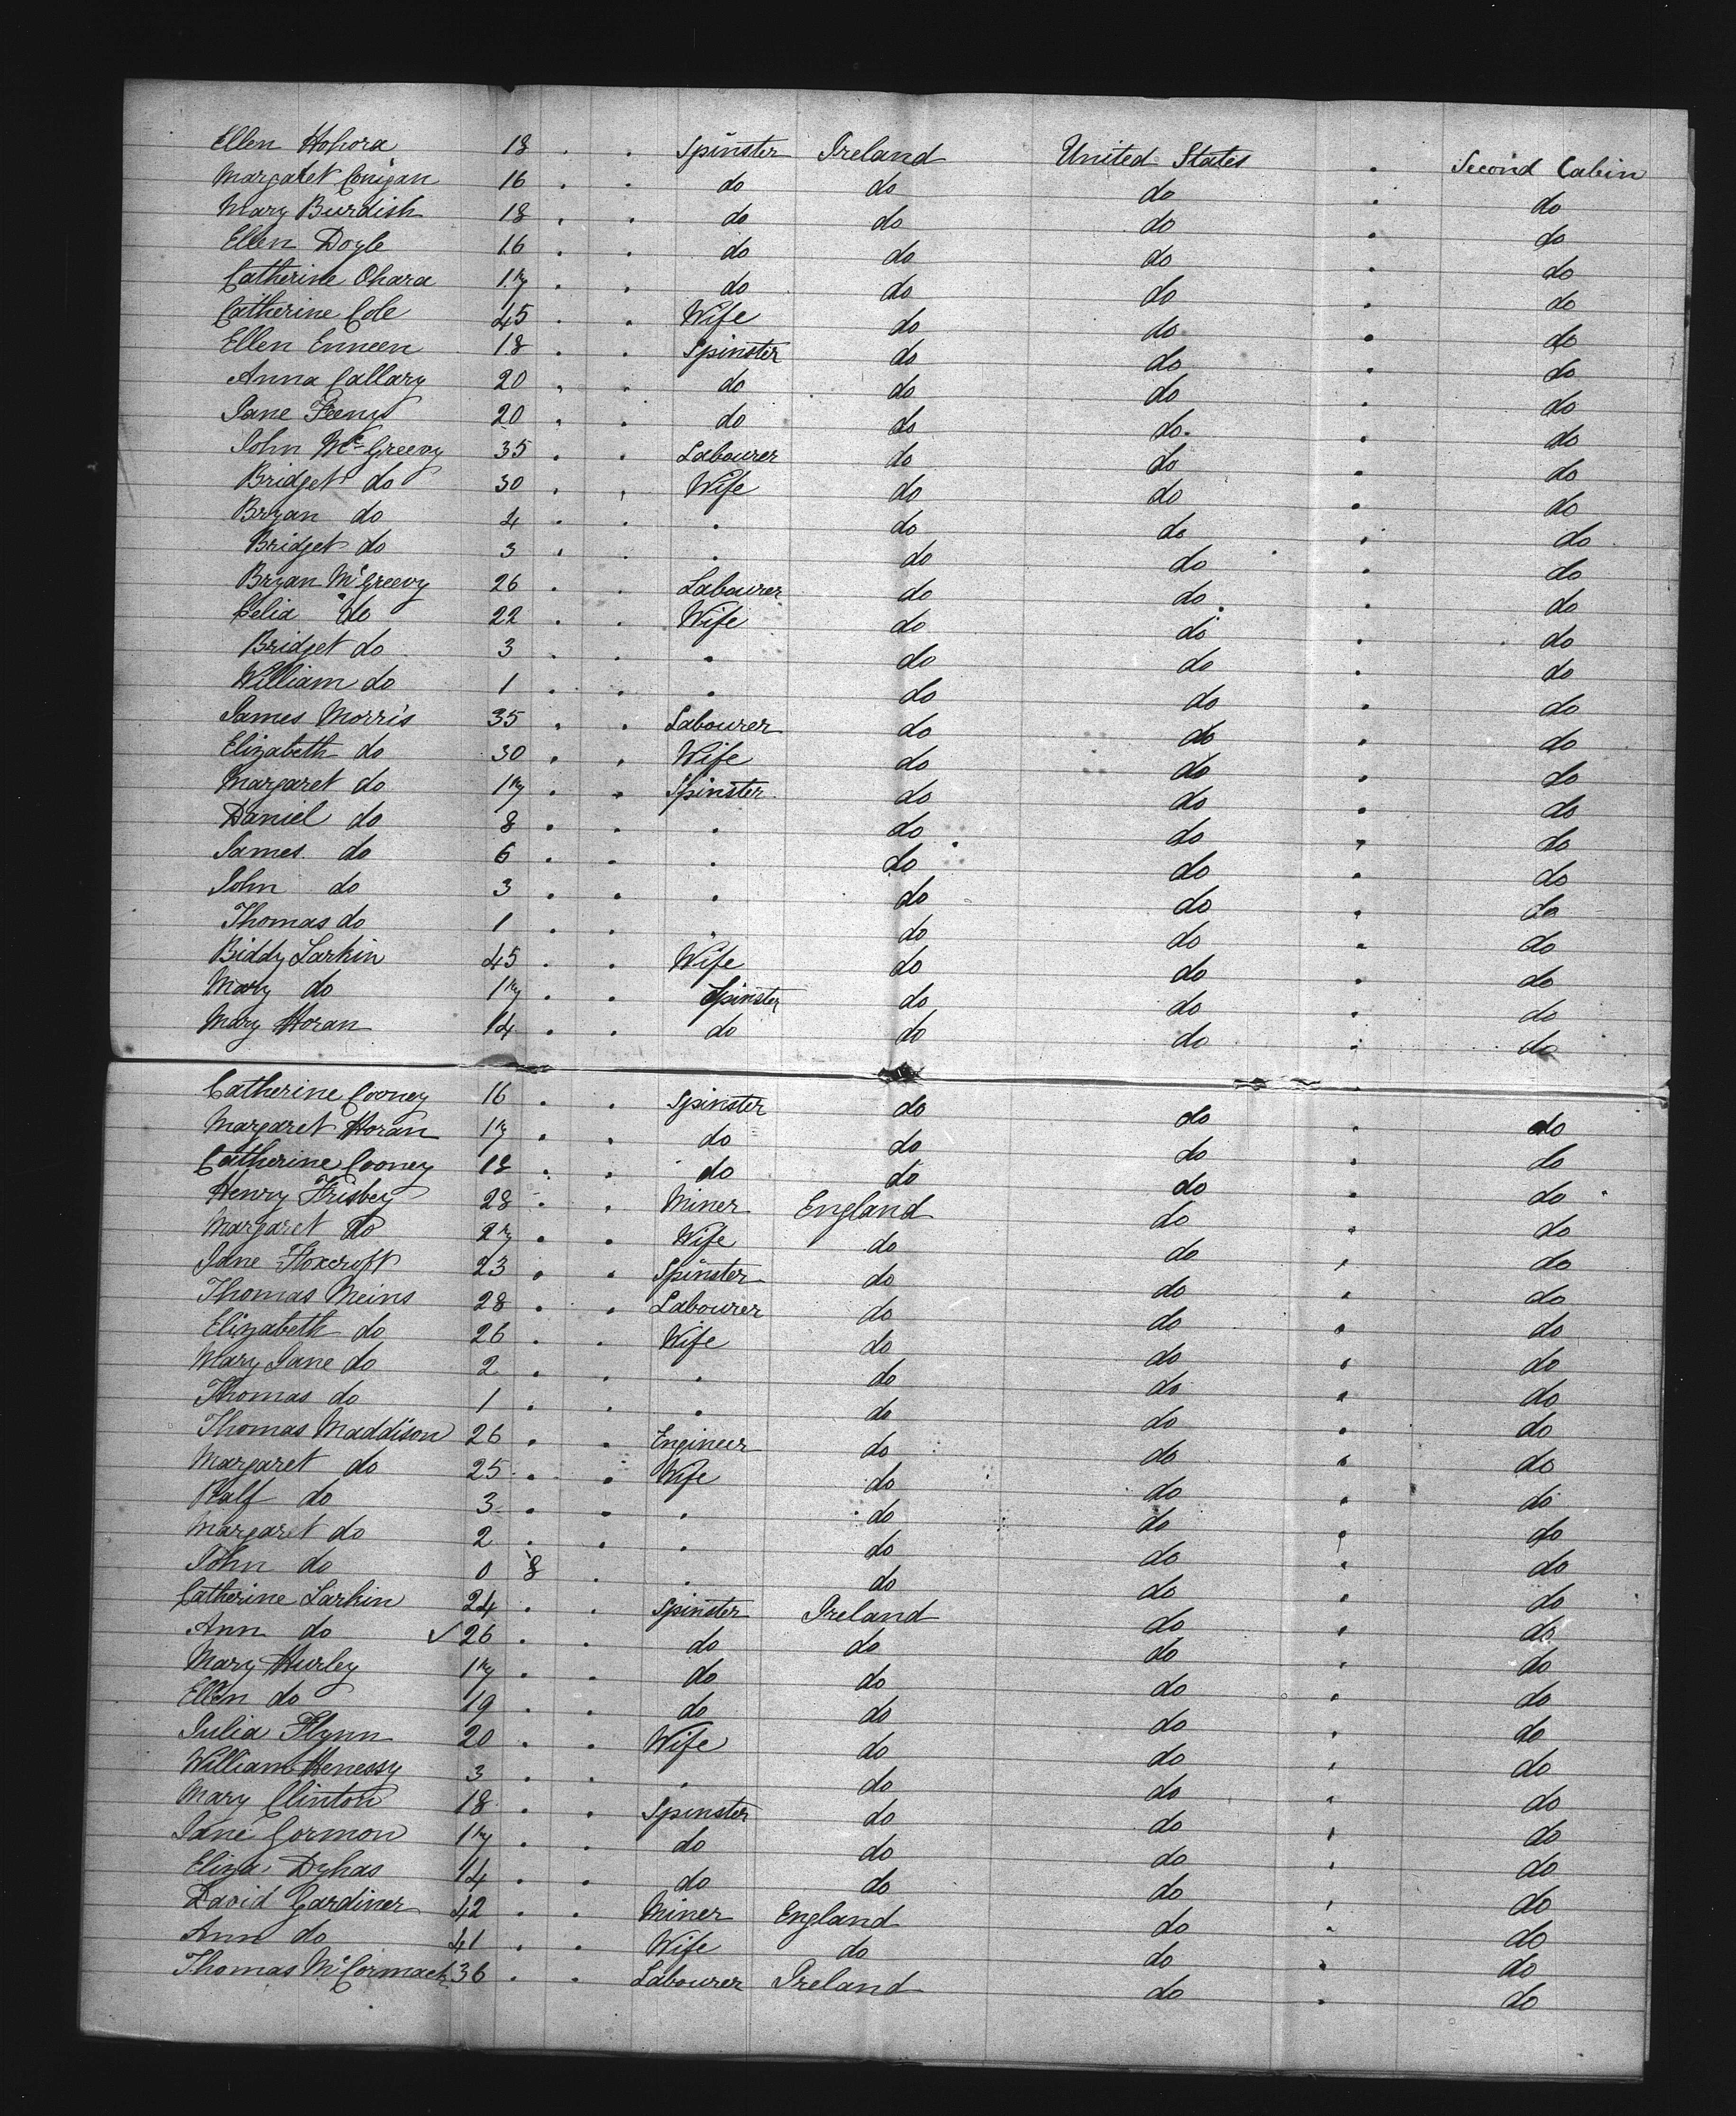 Ellen Hohora 18 . . Spinster Ireland United States . Second Cabin
Margaret Conigan 16 . . do do do . do
Mary Burdish 18 . . do do do . do
Ellen Doyle 16 . . do do do . do
Catherine Ohara 17 . . do do do . do
Catherine Cole 45 . . Wife do do . do
Ellen Enneen 18 . . Spinster do do . do
Anna Callary 20 . . do do do . do
Jane Feeny 20 . . do do do . do
John McGreevy 35 . . Labourer do do . do
Bridget do 30 . . Wife do do . do
Bryan do 4 . . . do do . do
Bridget do 3 . . . do do . do
Bryan McGreevy 26 . . Labourer do do . do
Celia do 22 . . Wife do do . do
Bridget do 3 . . . do do . do
William do 1 . . . do do . do
James Morris 35 . . Labourer do do . do
Elizabeth do 30 . . Wife do do . do
Margaret do 17 . . Spinster do do . do
Daniel do 8 . . . do do . do
James do 6 . . . do do . do
John do 3 . . . do do . do
Thomas do 1 . . . do do . do
Biddy Larkin 45 . . Wife do do . do
Mary do 17 . . Spinster do do . do
Mary Horan 14 . . do do do . do
Catherine Cooney 16 . . Spinster do do . do
Margaret Horan 17 . . do do do . do
Catherine Cooney 18 . . do do do . do
Henry Frisbey 28 . . Miner England do . do
Margaret do 27 . . Wife do do . do
Jane Floxcroft 23 . . Spinster do do . do
Thomas Meins 28 . . Labourer do do . do
Elizabeth do 26 . . Wife do do . do
Mary Jane do 2 . . . do do . do
Thomas do 1 . . . do do . do
Thomas Maddison 26 . . Engineer do do . do
Margaret do 25 . . Wife do do . do
Ralf do 3 . . . do do . do
Margaret do 2 . . . do do . do
John do 0 8 . . do do . do
Catherine Larkin 24 . . Spinster Ireland do . do
Ann do ✓ 26 . . do do do . do
Mary Hurley 17 . . do do do . do
Ellen do 19 . . do do do . do
Julia Flynn 20 . . Wife do do . do
William Henessy 3 . . . do do . do
Mary Clinton 18 . . Spinster do do . do
Jane Gormon 17 . . do do do . do
Eliza Dyhas 14 . . do do do . do
David Gardiner 42 . . Miner England do . do
Ann do 41 . . Wife do do . do
Thomas McCormack 36 . . Labourer Ireland do . do